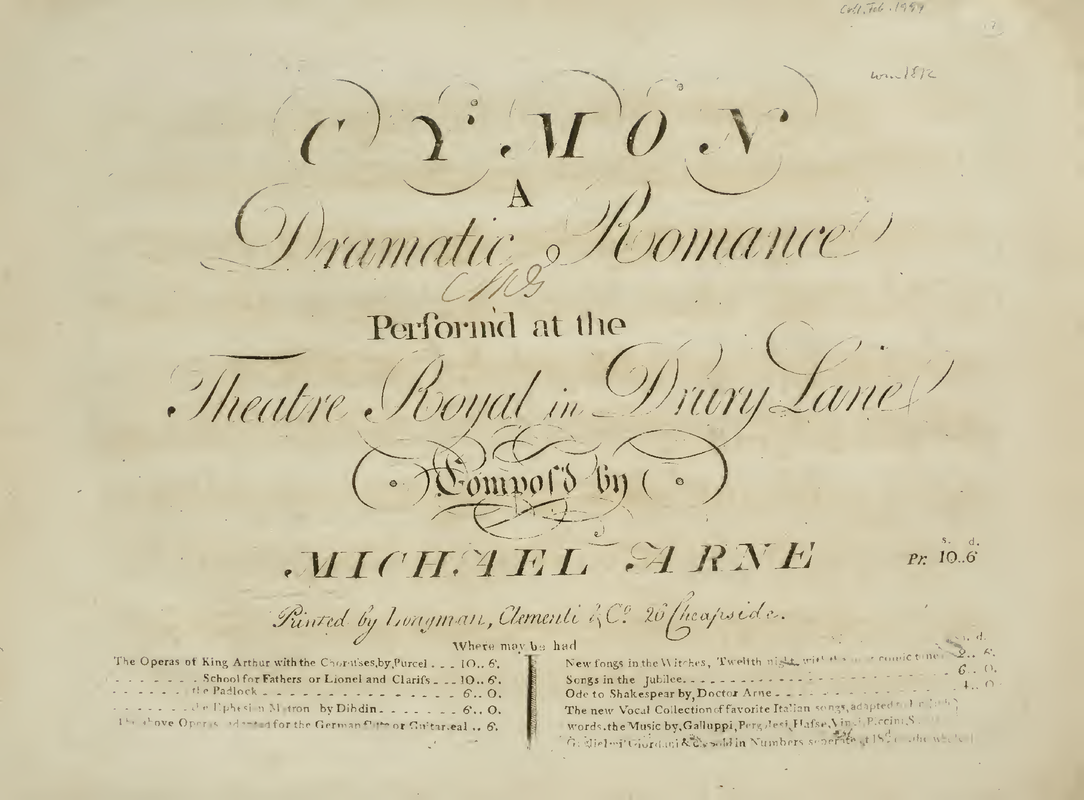 Coll. Feb. 1999
CYMON
A
Dramatic Romance
Perform'd at the
Theatre Royal in Drury Lane
Compos'd by
MICHAEL ARNE
s. d.
Pr. 10..6
Printed by Longman, Clementi & Co. 26 Cheapside.
Where may be had
The Operas of King Arthur with the Chorusses, by, Purcel . . . - 10.. 6.
. . . . . . . . School for Fathers or Lionel and Clariss - - - 10.. 6.
. . . . . . . the Padlock - - - - - - - - - - - - 6.. 0.
. . . . . . . the Ephesian Matron by Dihdin - - - - - - 6.. 0.
The above Operas adapted for the German flute or Guitar, eal .. 6.
s. d.
New songs in the Witches, Twelfth night, with the comic tunes 2.. 6.
Songs in the Jubilee - - - - - - - - - - - 6.. 0.
Ode to Shakespear by, Doctor Arne - - - - - - - 4.. 0
The new Vocal Collection of favorite Italian songs, adapted to English
words. the Music by, Galluppi, Pergolesi, Hasse, Vinci, Piccini, S
Guglielmi Giordani & sold in Numbers seperate at